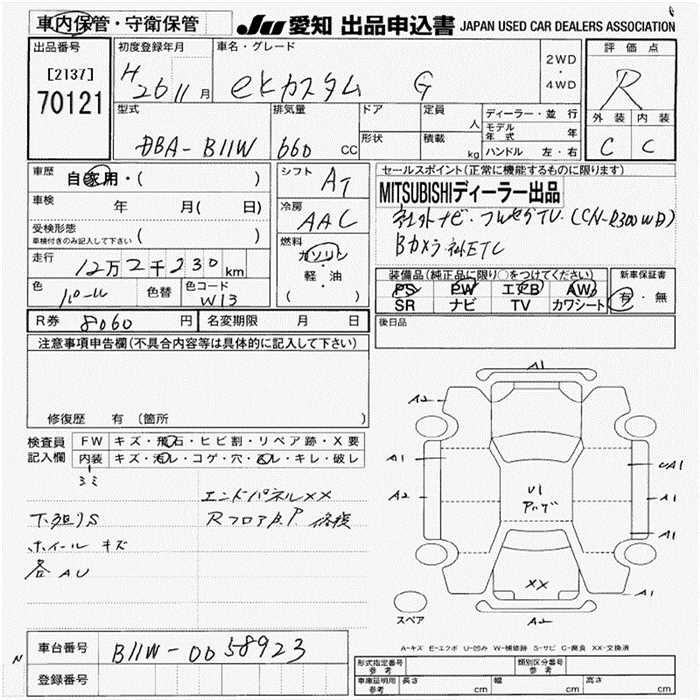 車内保管・守衛保管
JU 愛知 出品申込書 JAPAN USED CAR DEALERS ASSOCIATION
出品番号
[2137]
70121
初度登録年月
H 26 11月
車名・グレード
eKカスタム G
2WD
・
4WD
評価点
R
外装 内装
C C
型式
DBA-B11W
排気量
660 CC
ドア
形状
定員
人
積載
kg
ディーラー・並行
モデル年式 年
ハンドル 左・右
車歴
自家用・( )
車検
年 月( 日)
受検形態
車検付きのみ記入して下さい ( )
走行
12万2千230km
色
パール
色替
色コード
W13
シフト
AT
冷房
AAC
燃料
ガソリン
・
軽・油
( )
セールスポイント(正常に機能するものに限ります)
MITSUBISHIディーラー出品
社外ナビ・フルセグTV(CN-R300WD)
Bカメラ・社ETC
装備品(純正品に限り○をつけてください)
PS PW エアB AW
SR ナビ TV カワシート
新車保証書
有・無
R券 8060円
名変期限 月 日
後日品
注意事項申告欄(不具合内容等は具体的に記入して下さい)
修復歴 有 (箇所 )
検査員記入欄
FW キズ・飛石・ヒビ割・リペア跡・X要
内装 キズ・汚レ・コゲ・穴・凸レ・キレ・破レ
エンドパネルXX
下廻りS
ホイール キズ
各AU
A1
A2
A1
UA1
A2
A1
U1
A1
A1
XX
A2
スペア
A-キズ E-エクボ U-凹み W-補修跡 S-サビ C-腐食 XX-交換済
N
車台番号 B11W-0058923
登録番号
形式指定番号 参考
類別区分番号 参考
車庫証明用 参考 長さ cm 幅 cm 高さ cm